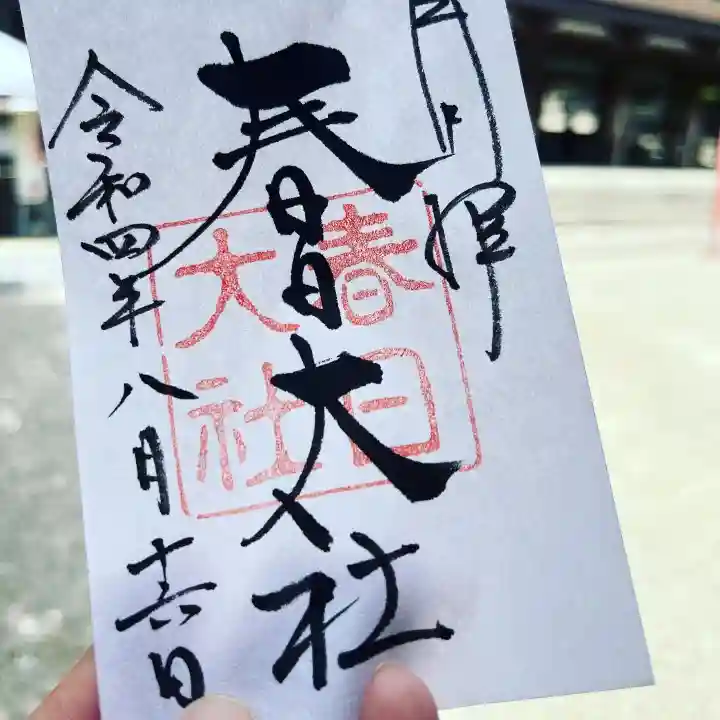 月日拝
春日大社
令和四年八月十六日
春日
大社